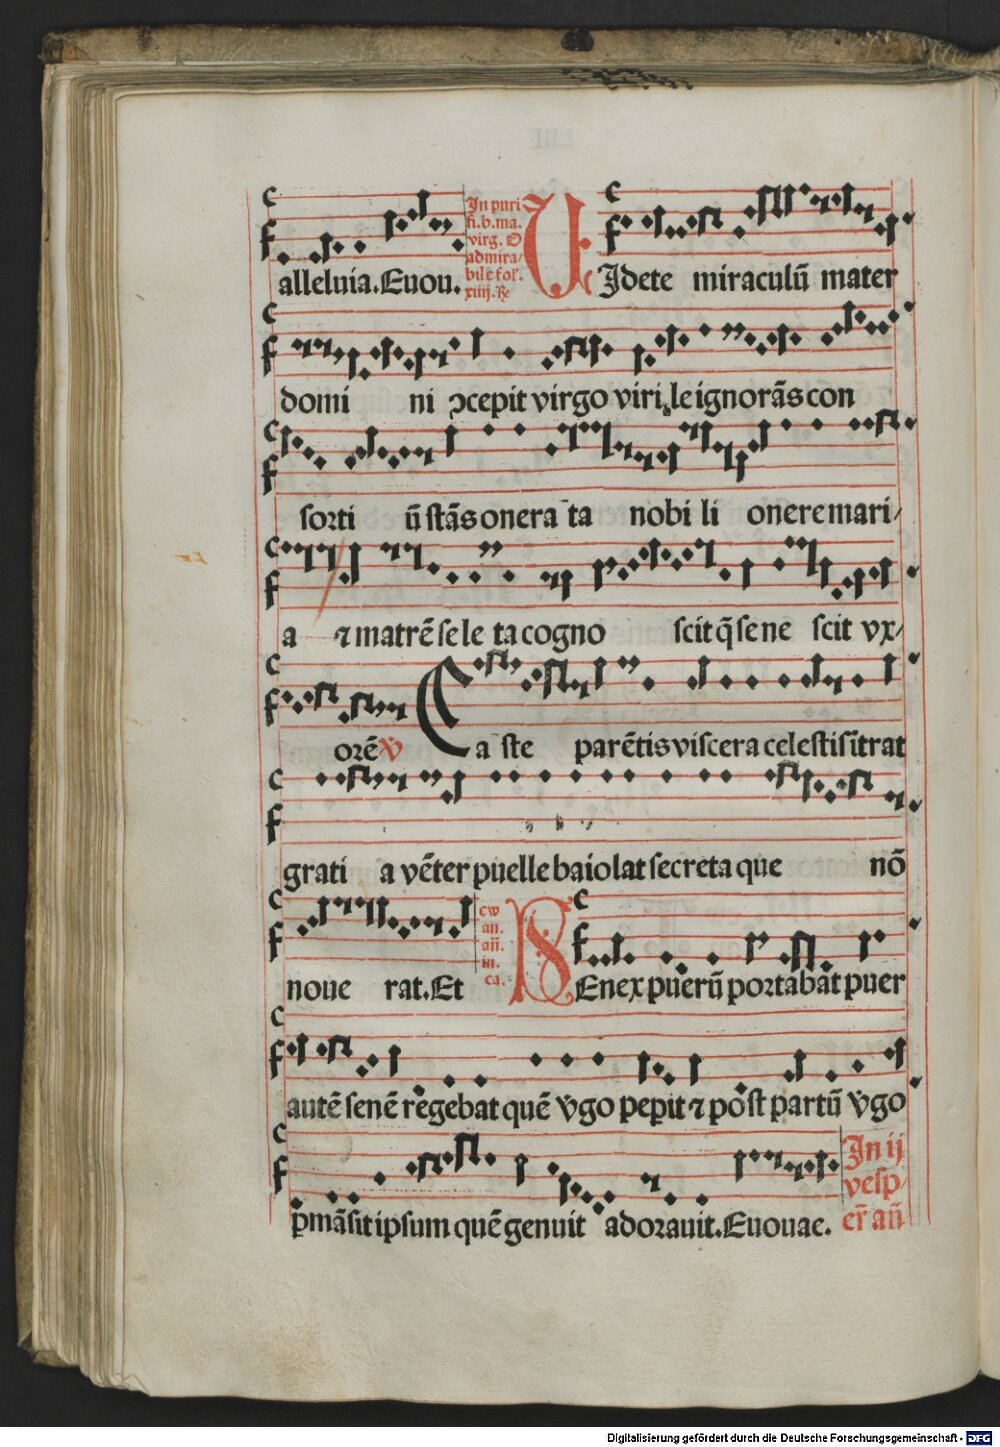 alleluia.Euou.
In puri
fi.b.ma.
virg. O
admira/
bile fol.
xiiij. ℞
VIdete miraculū mater
domi ni ↄcepit virgo viri le ignorãs con
sorti ū stãs onera ta nobi li onere mari/
a ⁊ matrē se le ta cogno scit q̄ se ne scit vx/
orē ℣ Ca ste parētis viscera celestis ītrat
grati a vēter puelle baiolat secreta que nō
noue rat. Et
ew
an.
añ.
in.
ca.
SEnex puerū portabat puer
autē senē regebat quē v̄go peperit ⁊ post partū v̄go
ꝑmãsit ipsum quē genuit adorauit. Euouae.
In ij
vesp/
er̄ añ
Digitalisierung gefördert durch die Deutsche Forschungsgemeinschaft - DFG